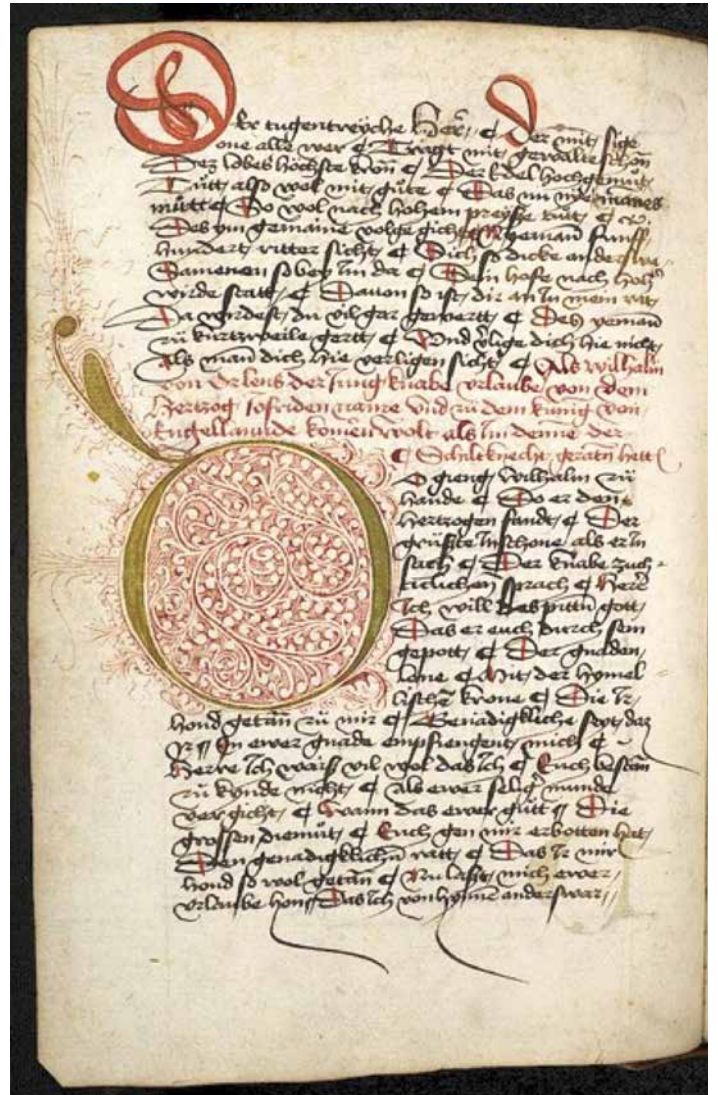 Der tugentreyche Herr, ¶ Der mit sige
one alle wer ¶ Tregt mit gewalte schon
Dez lobes höchste kron ¶ Der Edel hochgemüt,
Tutt also wol mit güte ¶ Das nu nye manes
mütte ¶ So wol nach hohem preyse
Des ym gemaine volge gicht ¶ Nyeman funff,
hundert ritter sicht, ¶ Sich so dicke
Samenen so bey Im da ¶ Dem hofe nach hoh
wirde statt, ¶ Dauon so ist, dir an In mein rat,
Da werdest, du vil gar gewertt, ¶ Des yeman
zü kurtzweile gertt, ¶ Vnd dich hie nicht,
Als man dich hie verligen sicht, ¶ Als wilhalm
von Orlens der Jung knabe vrlaube von dem
Hertzog Jofriden name vnd zu dem kunig von
Engellannde komen wolt als Im denne der
¶ Schiltknecht, geraten hett
O gieng, wilhalm zü
hande ¶ Do er den
Hertzogen fandt, ¶ Der
grüste In schone, als er In
sach ¶ Der knabe zuch
ticlichen sprach ¶ Herre
Ich will des pitten gott,
Das er euch durch sein
gepott, ¶ Der gnaden
lone ¶ Mit, der hymel
lischen krone ¶ Die Ir
hond getan zü mir ¶ Genadigkliche seyt, daz
Ir In ewer gnade empfiengent, mich ¶
Herre Ich waiss vil wol das Ich ¶ Euch bestan
zü kynde nicht, ¶ Als ewer selig munde
vergicht, ¶ Wann das ewer gütt ¶ Die
grossen diemüt, ¶ Euch gen mir erbotten hat,
Den genadigklichen ratt, ¶ Das Ir mir
hond so wol getan ¶ Nu latt, mich ewer
vrlaube hon Das Ich von hynnen anderswar